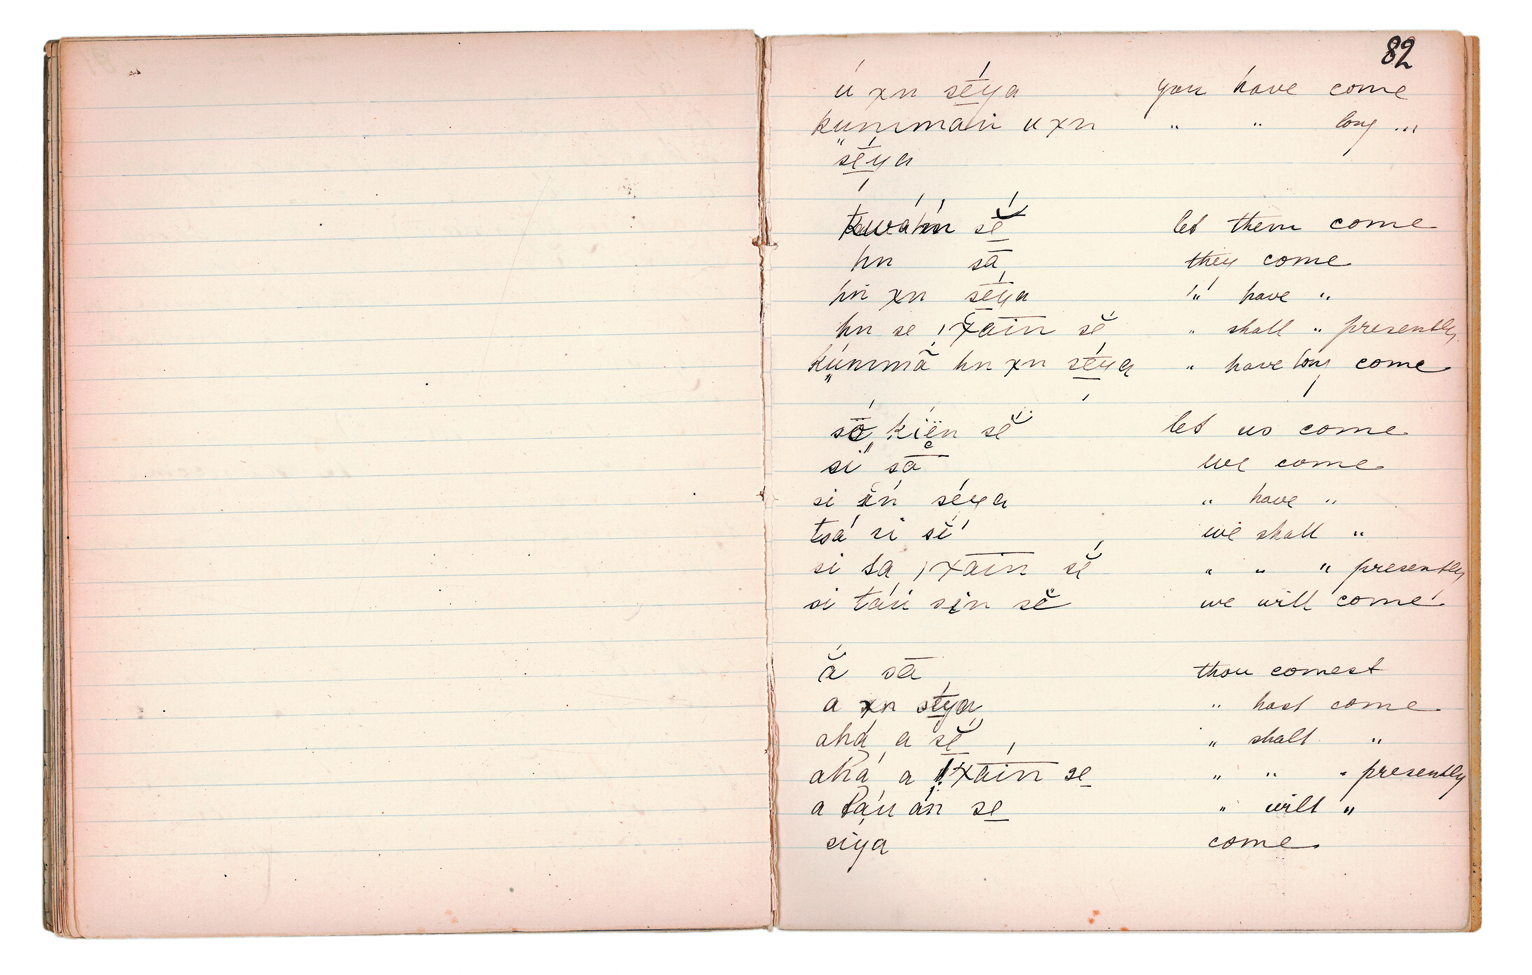 82
ú xn sé̱ya you have come
kunmān uxn " " long ...
sé̱ya
hń sĕ́ let them come
hn sā they come
hń xn sēya " have "
hn se ǀxāin sĕ " shall " presently
kúnmā̃ hn xn sé̱ya " have long come
kïën sĕ let us come
si sā we come
si ń séya " have "
tsá si sĕ́ we shall "
si sa ǀxāin sĕ́ " " " presently
si táú sin sĕ we will come
ắ sā thou comest
a xn sé̱ya " hast come
ahá a sĕ " shalt "
ahá a ǀxāin se̱ " " " presently
a táu áń se̱ " wilt "
síya come